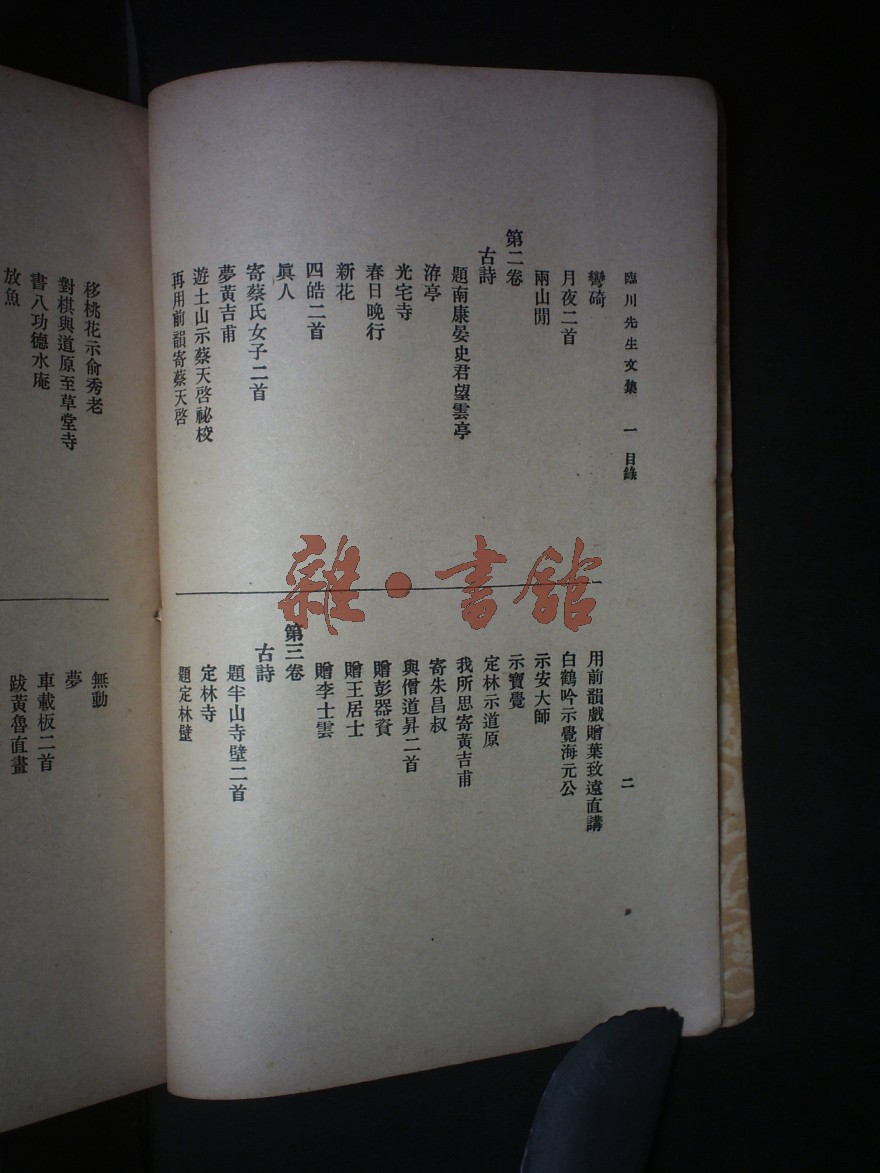 臨川先生文集 一 目錄 二
彎碕
月夜二首
兩山閒
第二卷
古詩
題南康晏史君望雲亭
洊亭
光宅寺
春日晚行
新花
四皓二首
眞人
寄蔡氏女子二首
夢黃吉甫
遊土山示蔡天啓祕校
再用前韻寄蔡天啓
用前韻戲贈葉致遠直講
白鶴吟示覺海元公
示安大師
示寶覺
定林示道原
我所思寄黃吉甫
寄朱昌叔
與僧道昇二首
贈彭器資
贈王居士
贈李士雲
第三卷
古詩
題半山寺壁二首
定林寺
題定林壁
移桃花示俞秀老
對棋與道原至草堂寺
書八功德水庵
放魚
無動
夢
車載板二首
跋黃魯直畫
雜·書館